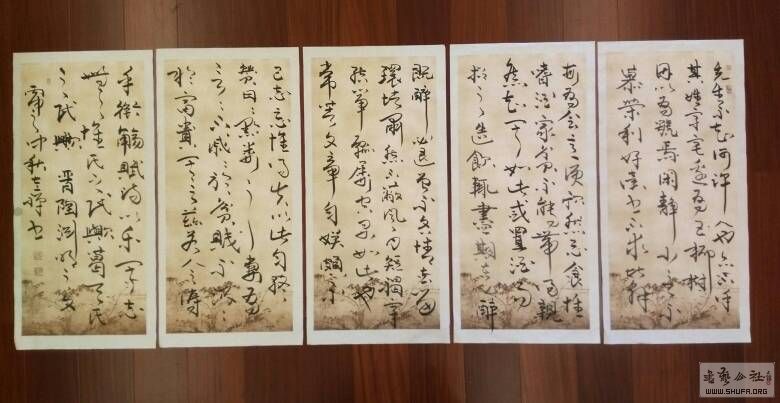 先生不知何許人也亦不詳
其姓字宅邊有五柳樹
因以為號焉閑靜少言不
慕榮利好讀書不求甚解
每有會意便欣然忘食性
嗜酒家貧不能常得親
舊知其如此或置酒而
招之造飲輒盡期在必醉
既醉而退曾不吝情去留
環堵蕭然不蔽風日短褐穿
結簞瓢屢空晏如也
常著文章自娛頗示
己志忘懷得失以此自終
贊曰黔婁之妻有
言不戚戚於貧賤不汲汲
於富貴其言茲若人之儔
乎銜觴賦詩以樂其志
無懷氏之民歟葛天氏
之民歟晉陶淵明之文
中秋書
書藝公社
WWW.SHUFA.ORG